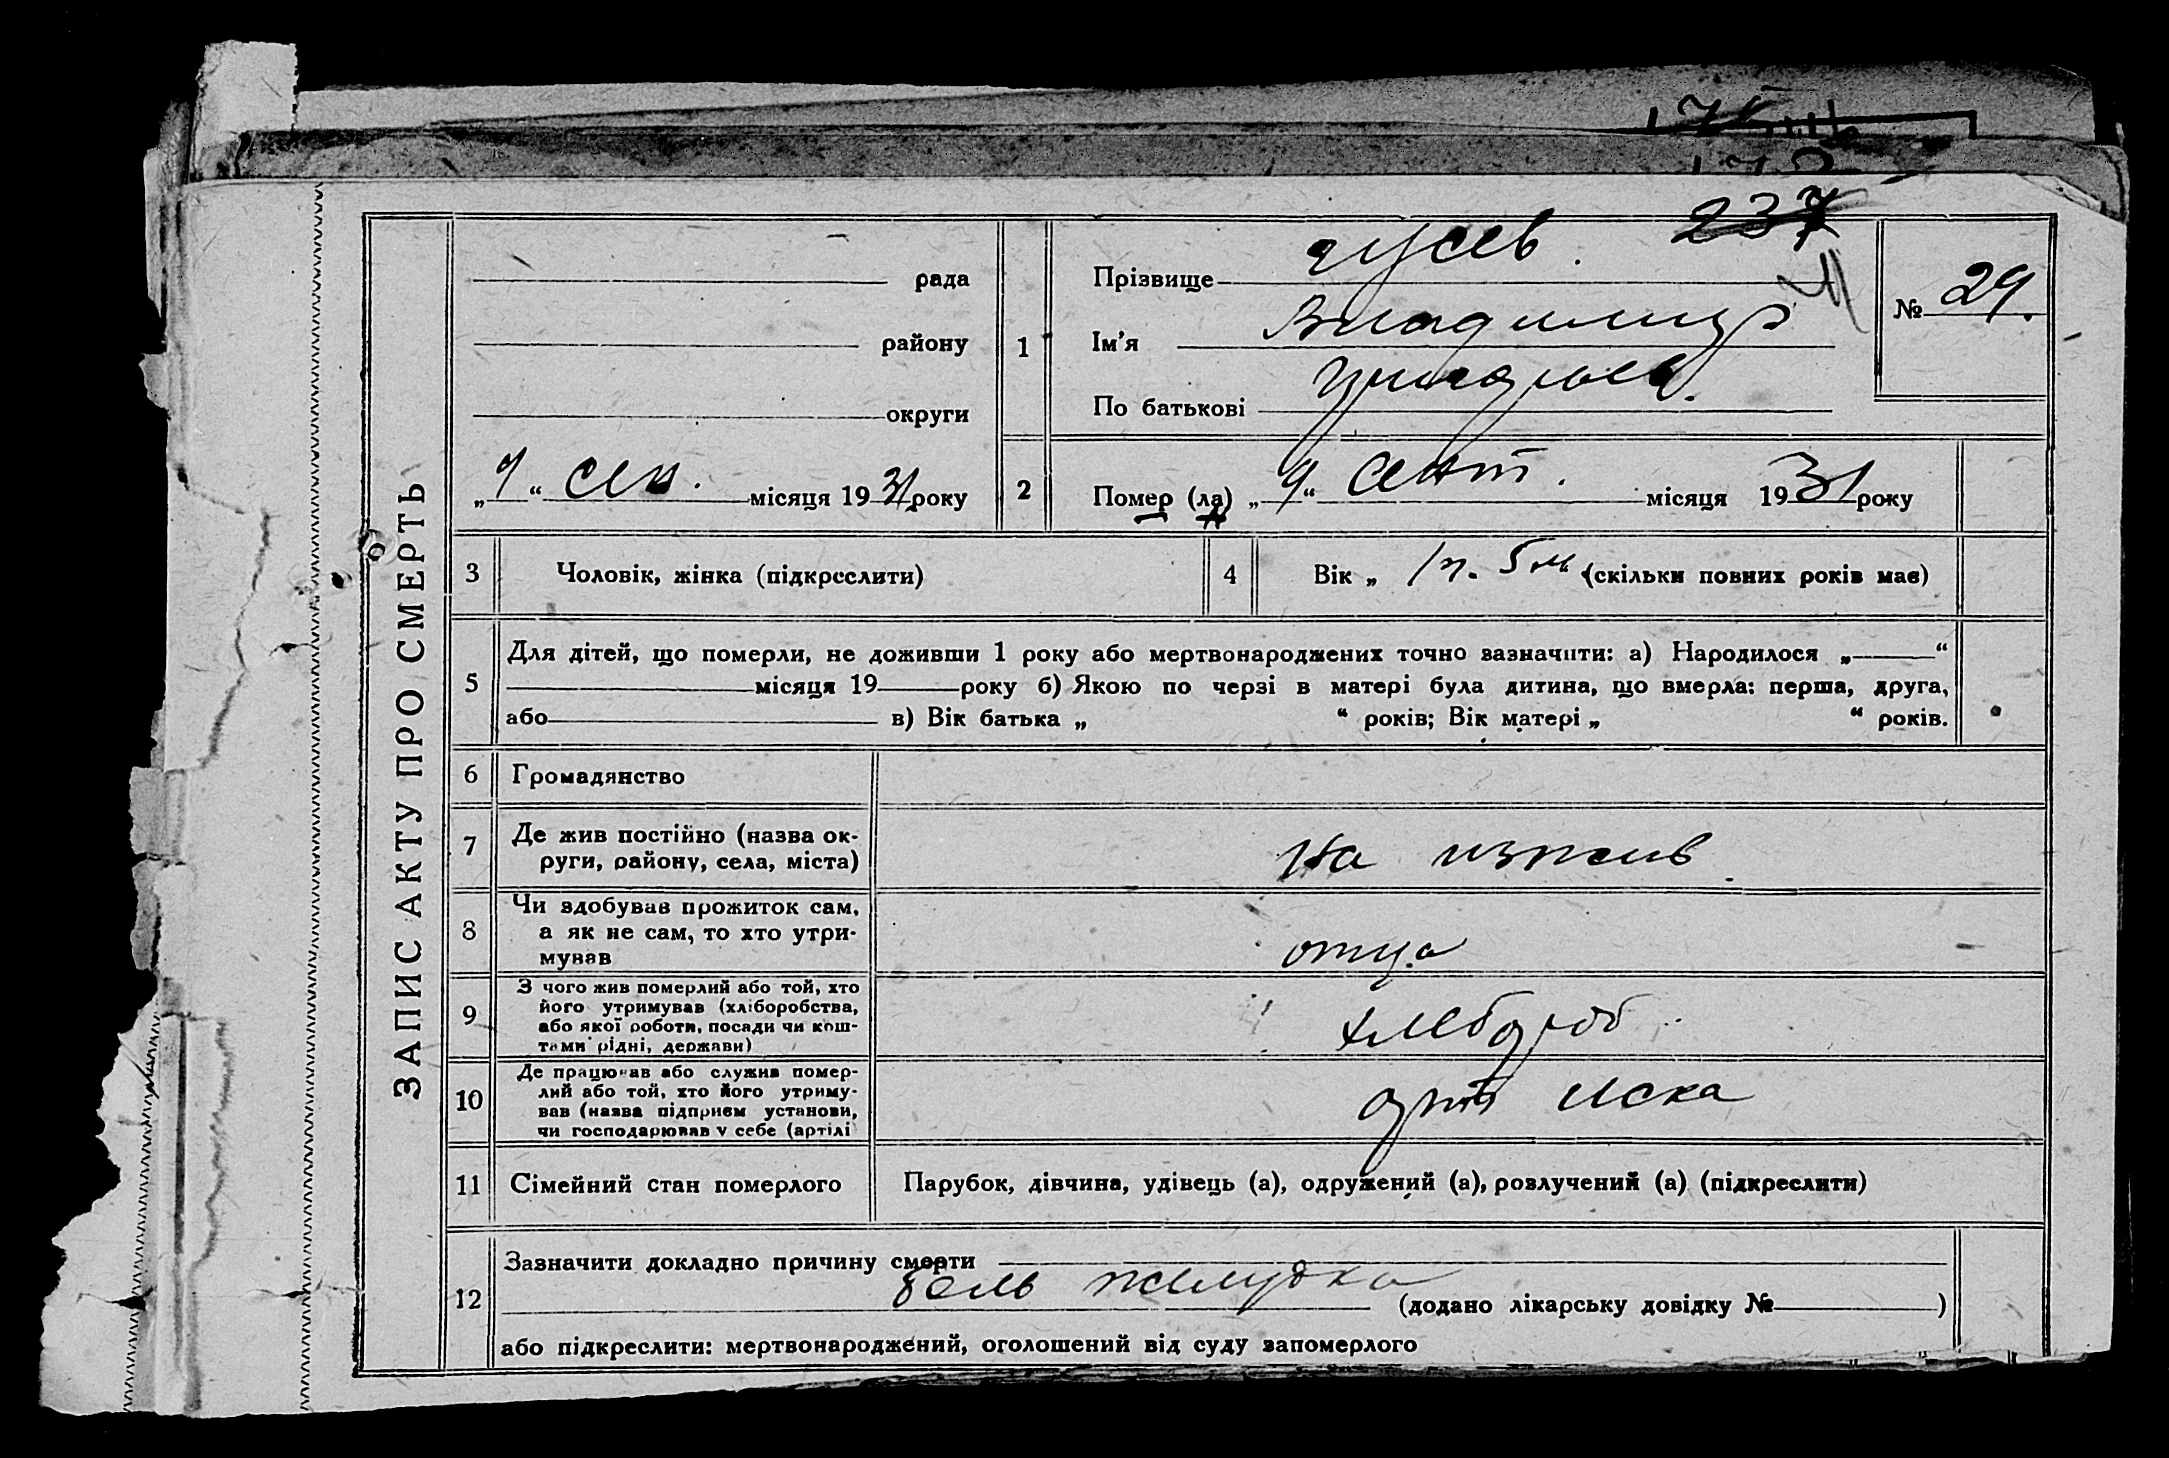 237
ЗАПИС АКТУ ПРО СМЕРТЬ
рада
району
округи
„9“ сен. місяця 1931 року
1
Прізвище Гусев.
Ім'я Владимир
По батькові
№ 29.
2
Помер (ла) „9“ Сент. місяця 1931 року
3 Чоловік, жінка (підкреслити)
4 Вік „1 г. 5 м“ (скільки повних років мав)
5 Для дітей, що померли, не доживши 1 року або мертвонароджених точно зазначити: а) Народилося „ “
місяця 19 року б) Якою по черзі в матері була дитина, що вмерла: перша, друга,
або в) Вік батька „ “ років; Вік матері „ “ років.
6 Громадянство
7 Де жив постійно (назва ок-
руги, району, села, міста)
На иждив
8 Чи здобував прожиток сам,
а як не сам, то хто утри-
мував
отца
9 З чого жив померлий або той, хто
його утримував (хліборобства,
або якої роботи, посади чи кош-
тами рідні, держави)
хлебороб
10 Де працював або служив помер-
лий або той, хто його утриму-
вав (назва підприєм установи,
чи господарював у себе (артілі
арт Иска
11 Сімейний стан померлого
Парубок, дівчина, удівець (а), одружений (а), розлучений (а) (підкреслити)
12 Зазначити докладно причину смерти
боль желудка (додано лікарську довідку № )
або підкреслити: мертвонароджений, оголошений від суду запомерлого